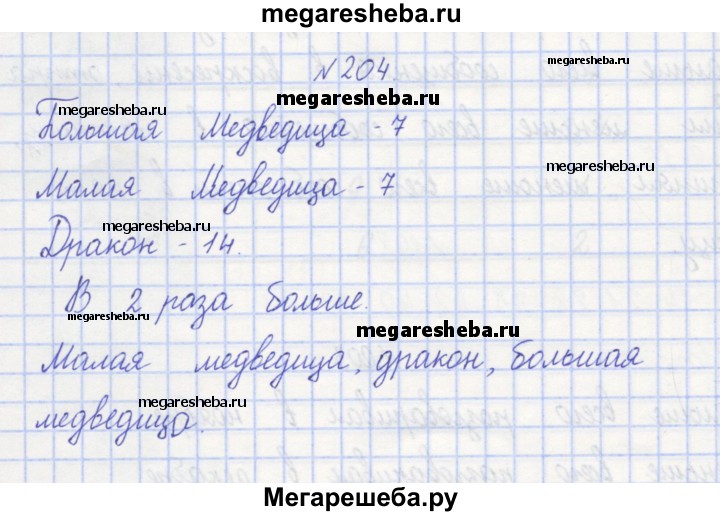 megaresheba.ru
№204.
megaresheba.ru
megaresheba.ru
megaresheba.ru
Большая Медведица - 7
megaresheba.ru
Малая Медведица - 7
megaresheba.ru
Дракон - 14.
В 2 раза больше.
megaresheba.ru
megaresheba.ru
Малая медведица, дракон, большая
megaresheba.ru
медведица.
Мегарешеба.ру